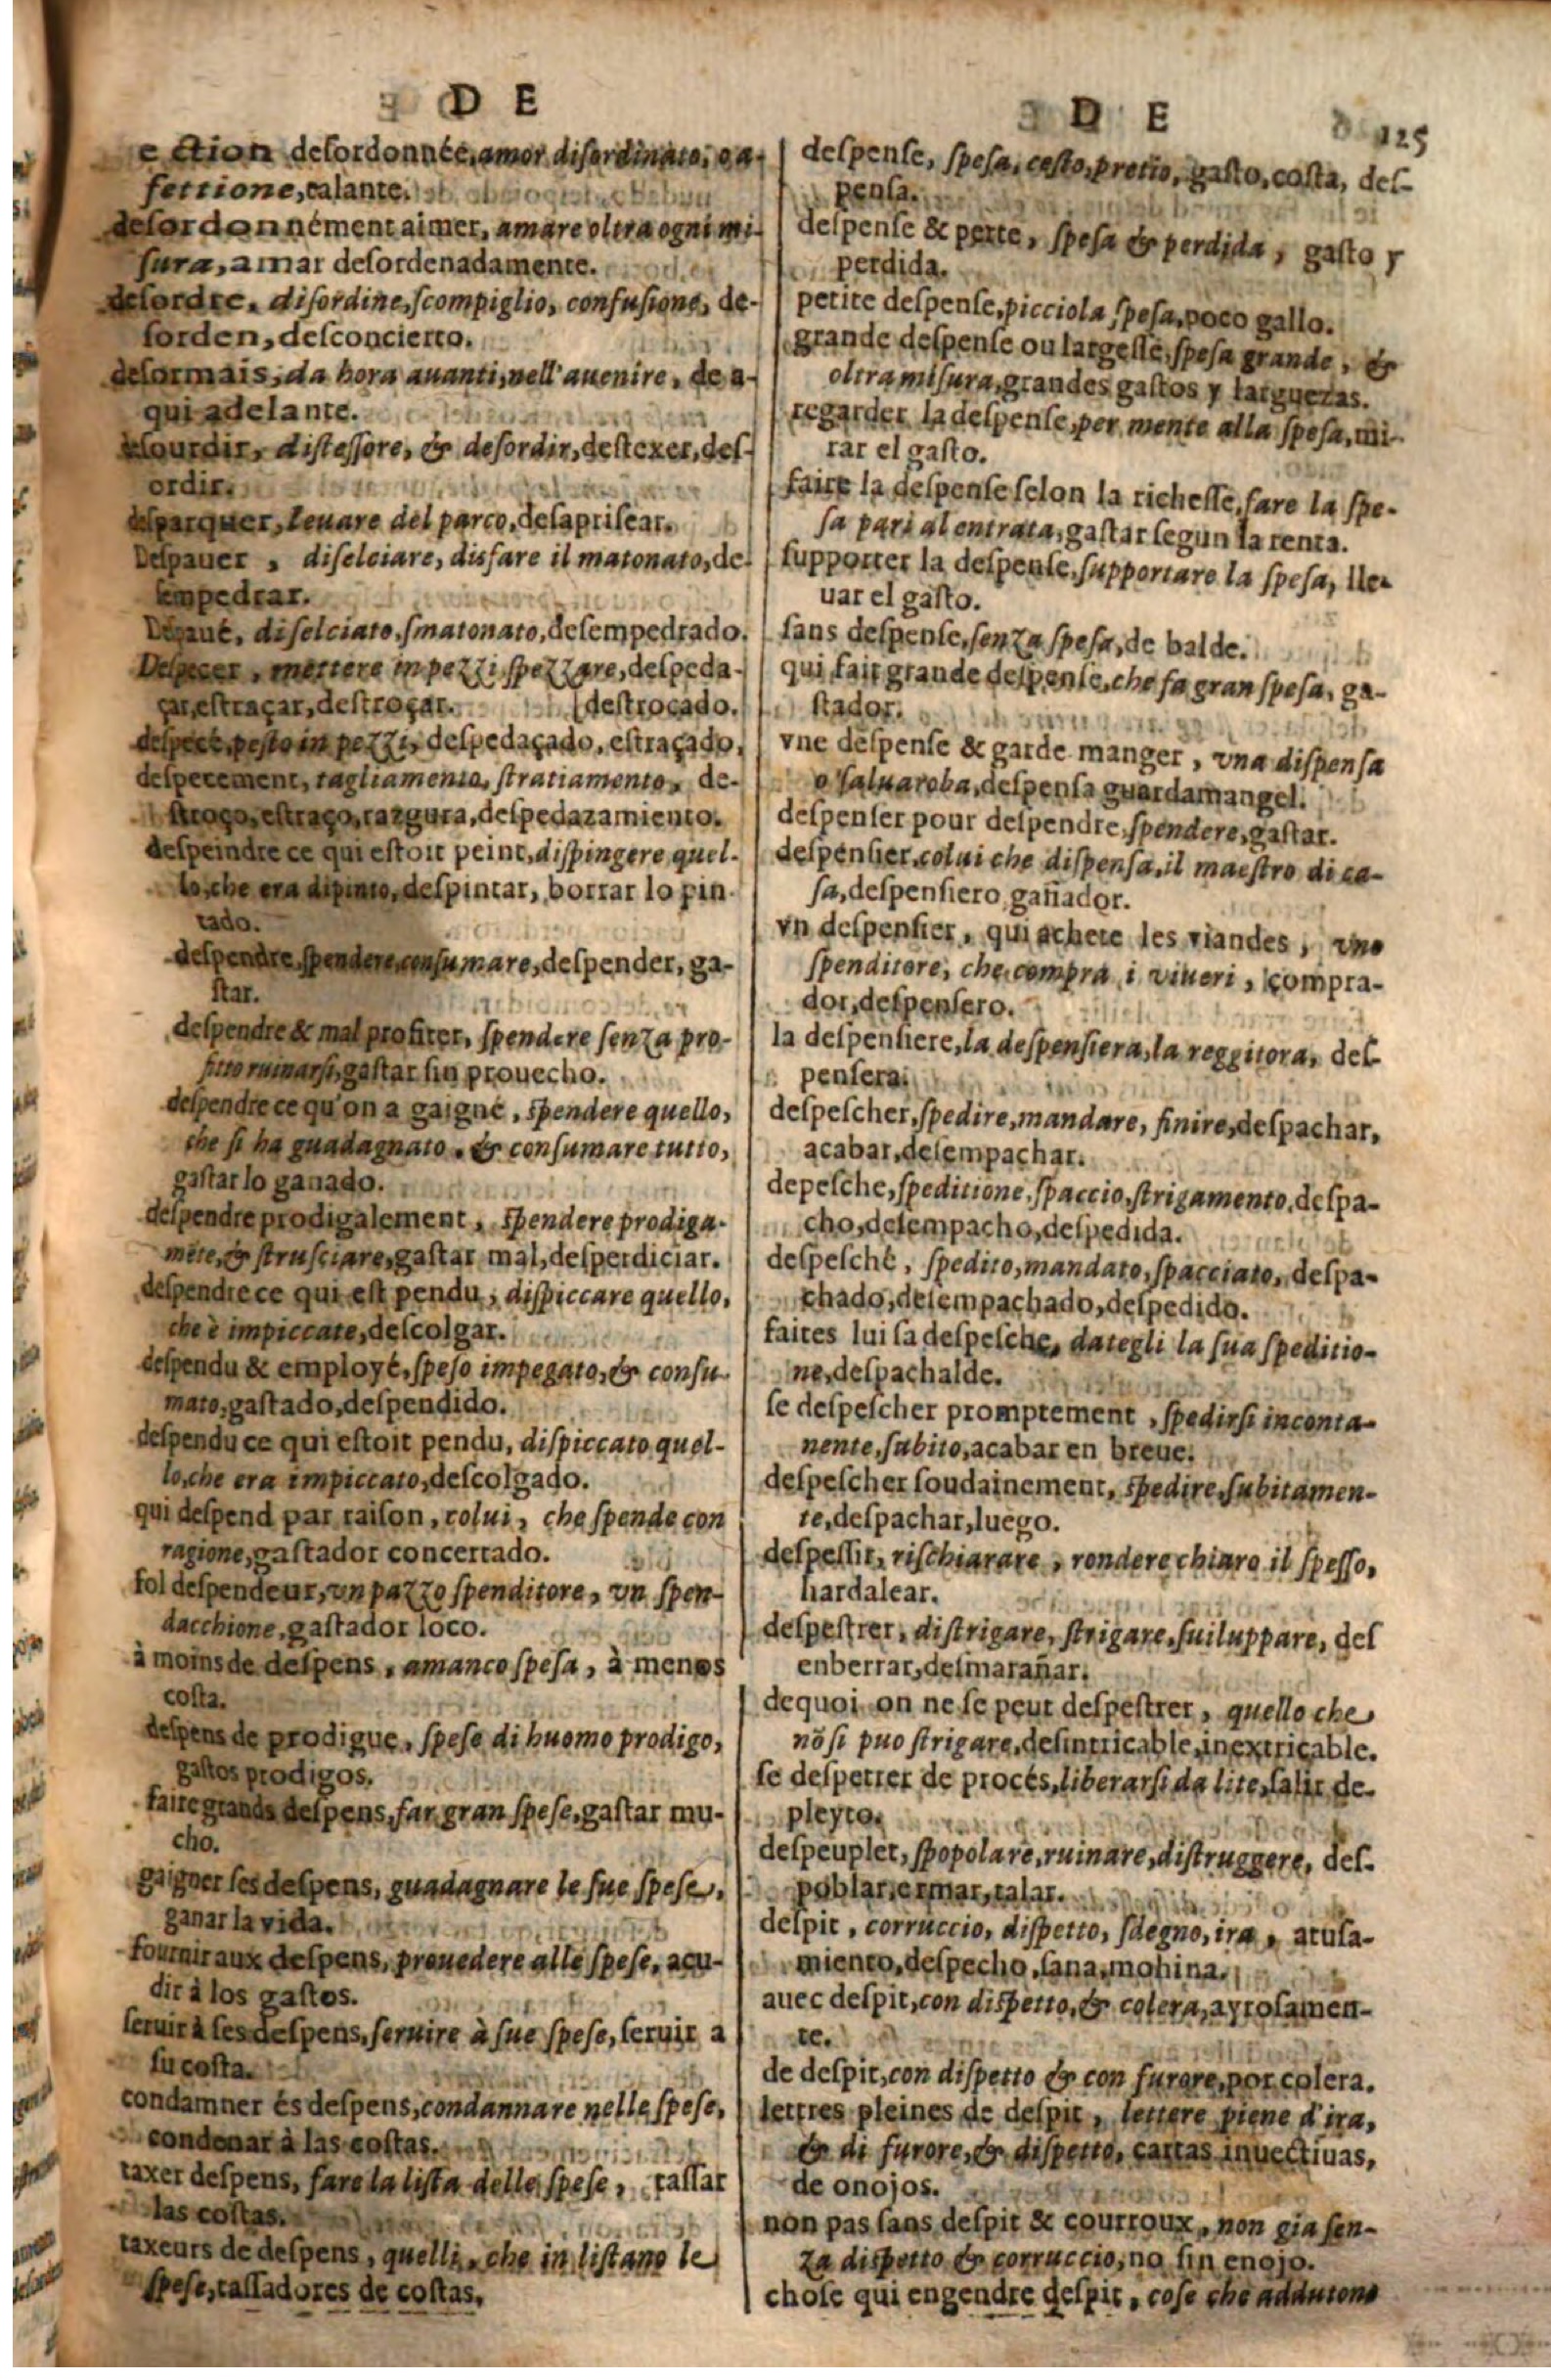 D E
ction desordonnée, amor disordinato, o a-
fettione, talante.
desordonnément aimer, amare oltra ogni mi-
sura, amar desordenadamente.
desordre, disordine, scompiglio, confusione, de-
sorden, desconcierto.
desormais, da hora auanti, nell'auenire, de a-
qui adelante.
desourdir, distessore, & desordir, destexer, des-
ordir.
desparquer, leuare del parco, desapriscar.
Despauer, diselciare, disfare il matonato, de-
sempedrar.
diselciato, smatonato, desempedrado.
Despecer, mettere in pezzi, spezzare, despeda-
çar, estraçar, destroçar. (destrocado.
despecé, pesto in pezzi, despedaçado, estraçado,
despecement, tagliamento, stratiamento, de-
stroço, estraço, razgura, despedazamiento.
despeindre ce qui estoit peint, dispingere quel-
lo, che era dipinto, despintar, borrar lo pin-
tado.
despendre, spendere, consumare, despender, ga-
star.
despendre & mal profiter, spendere senza pro-
fitto ruinarsi, gastar sin prouecho.
despendre ce qu'on a gaigné, spendere quello,
che si ha guadagnato, & consumare tutto,
gastar lo ganado.
despendre prodigalement, spendere prodiga-
mēte, & strusciare, gastar mal, desperdiciar.
despendre ce qui est pendu, dispiccare quello,
che è impiccate, descolgar.
despendu & employé, speso impegato, & consu-
mato, gastado, despendido.
despendu ce qui estoit pendu, dispiccato quel-
lo, che era impiccato, descolgado.
qui despend par raison, colui, che spende con
ragione, gastador concertado.
fol despendeur, vn pazzo spenditore, vn spen-
dacchione, gastador loco.
à moins de despens, a manco spesa, à menos
costa.
despens de prodigue, spese di huomo prodigo,
gastos prodigos.
faire grands despens, far gran spese, gastar mu-
cho.
gaigner ses despens, guadagnare le sue spese,
ganar la vida.
fournir aux despens, prouedere alle spese, acu-
dir à los gastos.
seruir à ses despens, seruire à sue spese, seruir a
su costa.
condamner és despens, condannare nelle spese,
condenar à las costas.
taxer despens, fare la lista delle spese, tassar
las costas.
taxeurs de despens, quelli, che in listano le
spese, tassadores de costas.
D E 125
despense, spesa, costo, pretio, gasto, costa, des-
pensa.
despense & perte, spesa & perdida, gasto y
perdida.
petite despense, picciola spesa, poco gallo.
grande despense ou largesse, spesa grande, &
oltra misura, grandes gastos y larguezas.
regarder la despense, per mente alla spesa, mi-
rar el gasto.
faire la despense selon la richesse, fare la spe-
sa pari al entrata, gastar segun la renta.
supporter la despense, supportare la spesa, lle-
uar el gasto.
sans despense, senza spesa, de balde.
qui fait grande despense, che fa gran spesa, ga-
stador.
vne despense & garde manger, vna dispensa
o saluaroba, despensa guardamangel.
despenser pour despendre, spendere, gastar.
despensier, colui che dispensa, il maestro di ca-
sa, despensiero gañador.
vn despensier, qui achete les viandes, vno
spenditore, che compra i viueri, compra-
dor, despensero.
la despensiere, la despensiera, la reggitora, des-
pensera.
despescher, spedire, mandare, finire, despachar,
acabar, desempachar.
depesche, speditione, spaccio, strigamento, despa-
cho, desempacho, despedida.
despesché, spedito, mandato, spacciato, despa-
chado, desempachado, despedido.
faites lui sa despesche, dategli la sua speditio-
ne, despachalde.
se despescher promptement, spedirsi inconta-
nente, subito, acabar en breue.
despescher soudainement, spedire, subitamen-
te, despachar, luego.
despessir, rischiarare, rendere chiaro il spesso,
hardalear.
despestrer, distrigare, strigare, suiluppare, des
enberrar, desmarañar.
dequoi on ne se peut despestrer, quello che
nō si puo strigare, desintricable, inextricable.
se despetrer de procés, liberarsi da lite, salir de-
pleyto.
despeupler, spopolare, ruinare, distruggere, des-
poblar, ermar, talar.
despit, corruccio, dispetto, sdegno, ira, atufa-
miento, despecho, sana, mohina.
auec despit, con dispetto, & colera, ayrosamen-
te.
de despit, con dispetto & con furore, por colera.
lettres pleines de despit, lettere piene d'ira,
& di furore, & dispetto, cartas inuectiuas,
de onojos.
non pas sans despit & courroux, non gia sen-
za dispetto & corruccio, no sin enojo.
chose qui engendre despit, cose che addutono